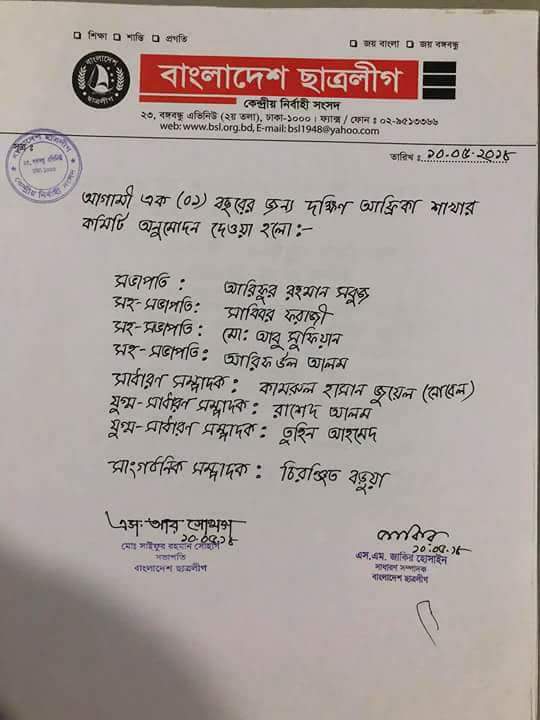 শিক্ষা শান্তি প্রগতি
জয় বাংলা জয় বঙ্গবন্ধু
বাংলাদেশ ছাত্রলীগ
বাংলাদেশ ছাত্রলীগ
কেন্দ্রীয় নির্বাহী সংসদ
২৩, বঙ্গবন্ধু এভিনিউ (২য় তলা), ঢাকা-১০০০ । ফ্যাক্স / ফোন : ০২-৯৫১৩৩৬৬
web: www.bsl.org.bd, E-mail: bsl1948@yahoo.com
সূত্র :
তারিখ : ১০.০৫.২০১৮
বাংলাদেশ ছাত্রলীগ
২৩, বঙ্গবন্ধু এভিনিউ
ঢাকা-১০০০
কেন্দ্রীয় নির্বাহী সংসদ
আগামী এক (০১) বছরের জন্য দক্ষিণ আফ্রিকা শাখার
কমিটি অনুমোদন দেওয়া হলো :-
সভাপতি : আরিফুর রহমান সবুজ
সহ-সভাপতি : সাব্বির ফরাজী
সহ-সভাপতি : মো: আবু সুফিয়ান
সহ-সভাপতি : আরিফ উল আলম
সাধারণ সম্পাদক : কামরুল হাসান জুয়েল (সোবেল)
যুগ্ম-সাধারণ সম্পাদক : রাশেদ আলম
যুগ্ম-সাধারণ সম্পাদক : তুহিন আহমেদ
সাংগঠনিক সম্পাদক : চিরঞ্জিত বড়ুয়া
এস আর সোহাগ
১০.০৫.১৮
মোঃ সাইফুর রহমান সোহাগ
সভাপতি
বাংলাদেশ ছাত্রলীগ
জাকির
১০.০৫.১৮
এস.এম. জাকির হোসাইন
সাধারণ সম্পাদক
বাংলাদেশ ছাত্রলীগ